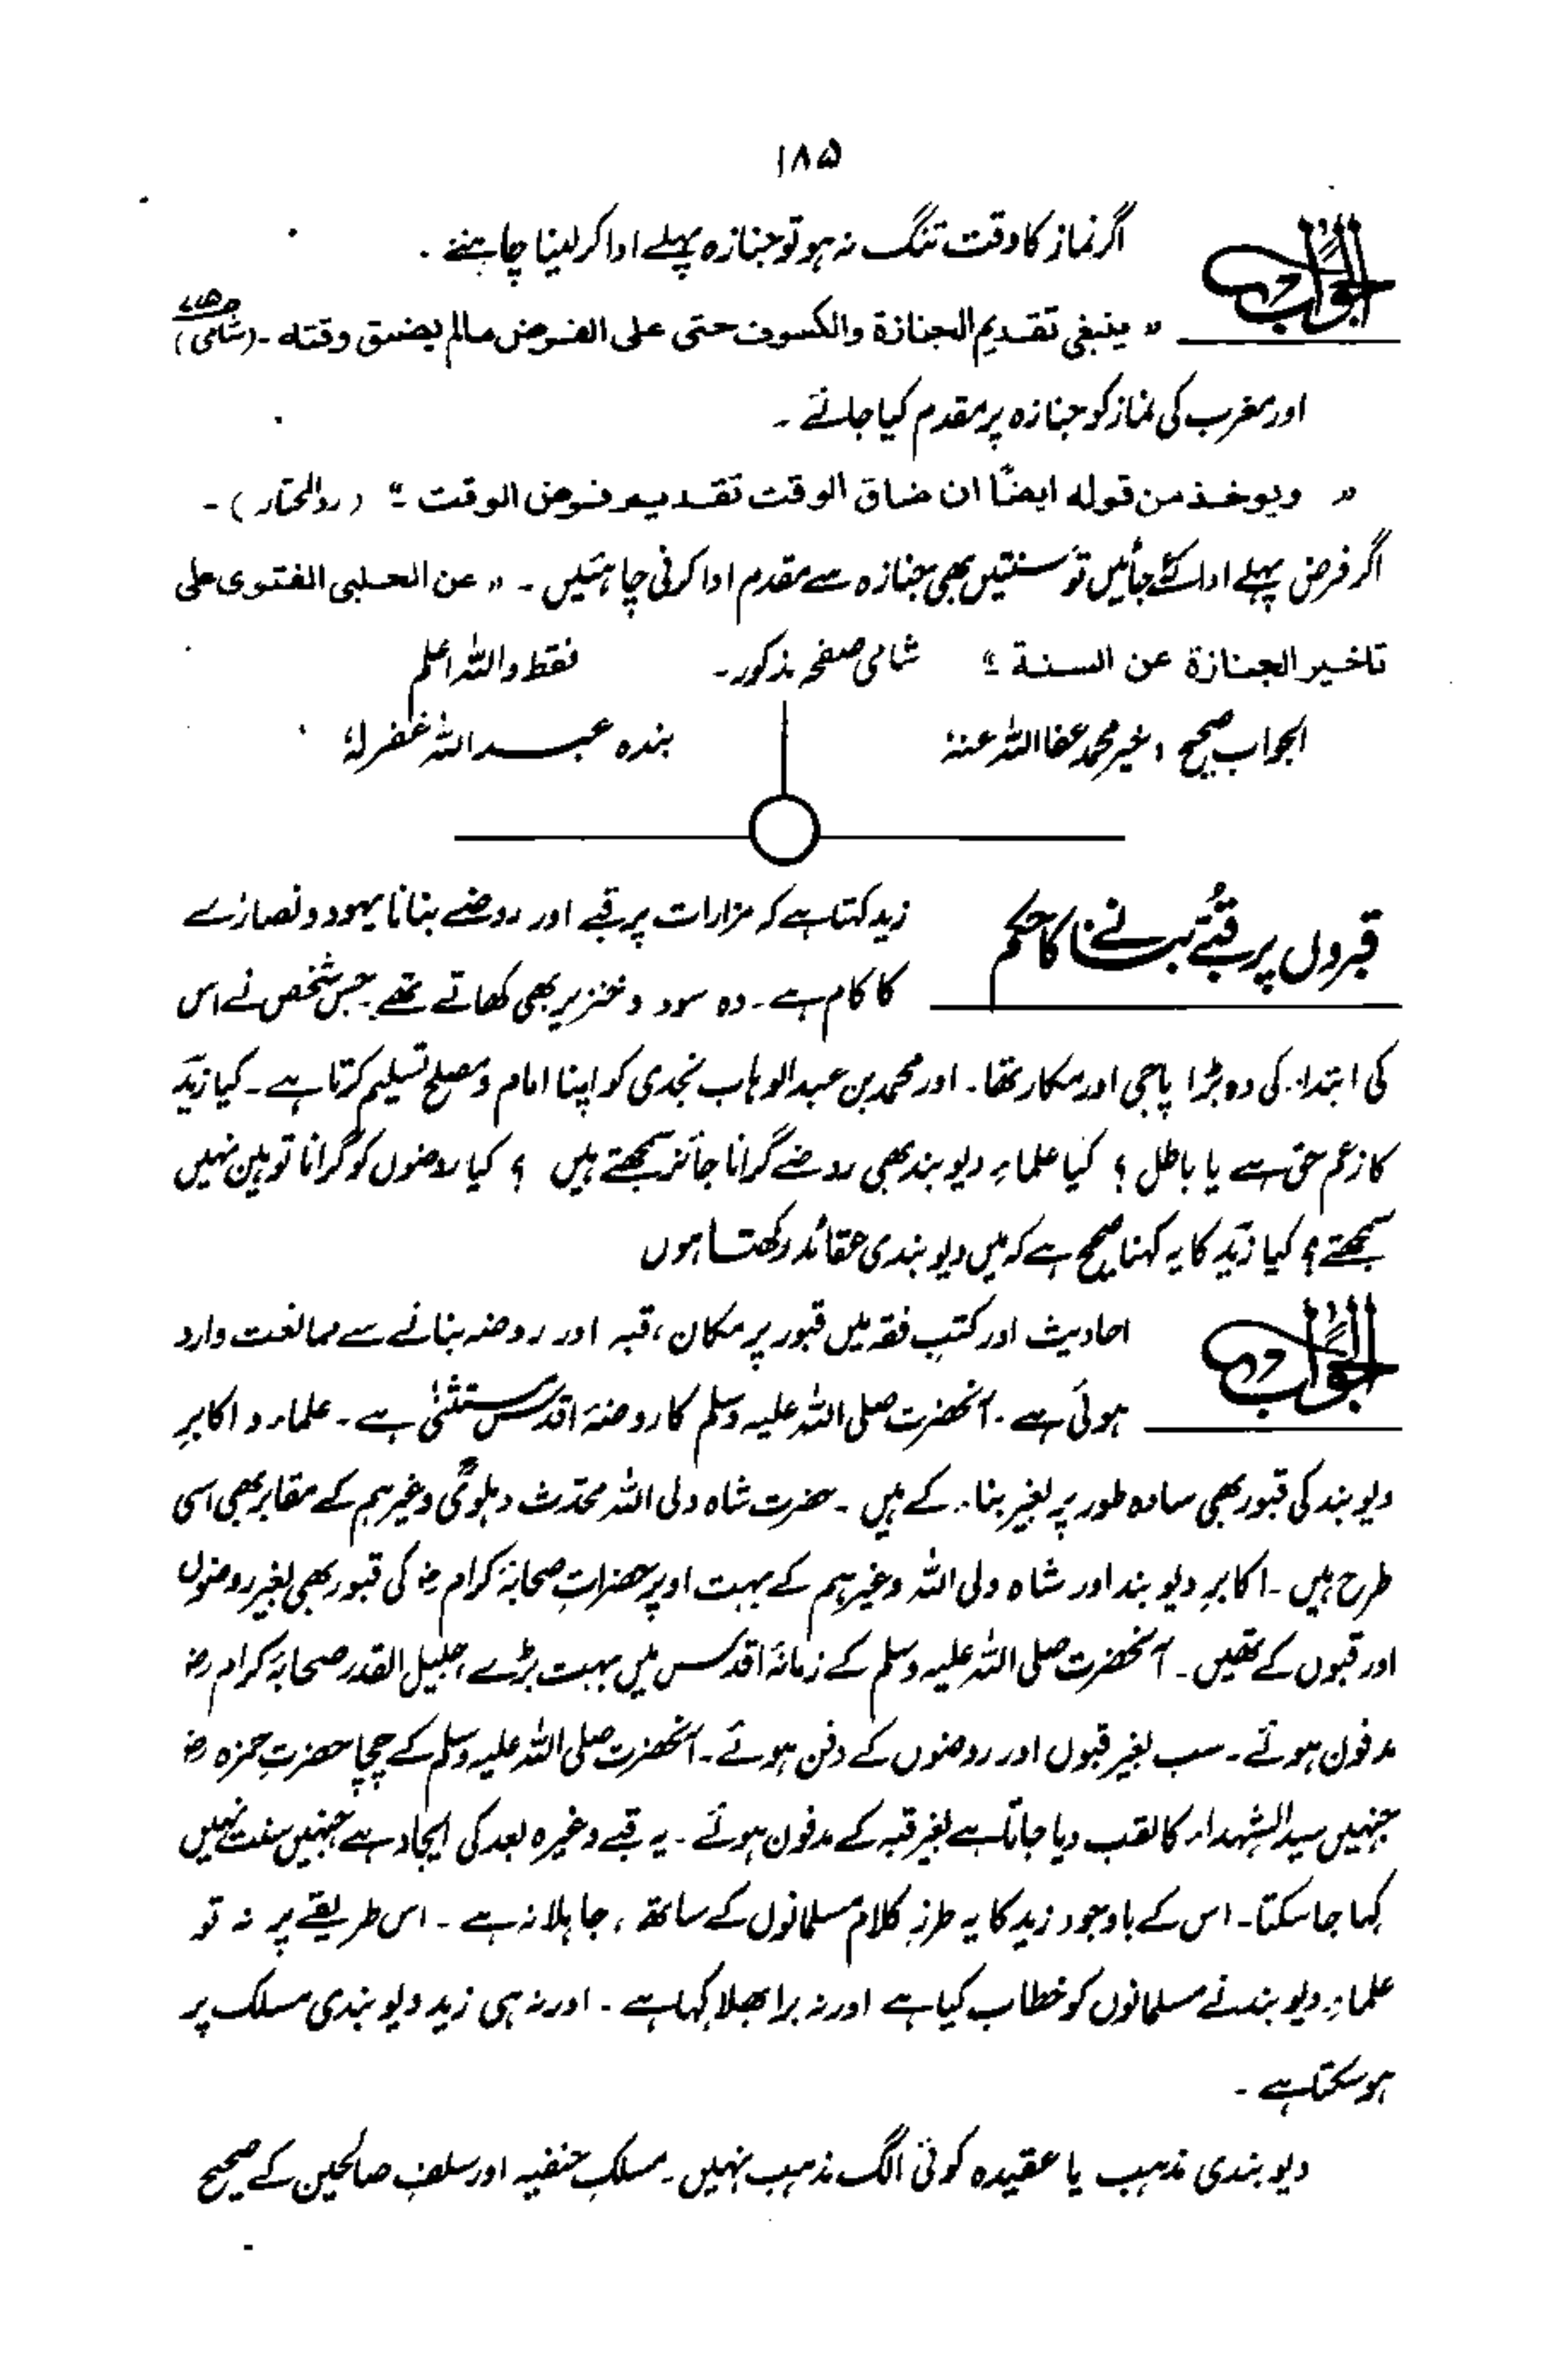 ۱۸۵
الجواب
اگر نماز کا وقت تنگ نہ ہو تو جنازہ پہلے ادا کر لینا چاہئے ۔
" ینبغی تقدیم الجنازة والکسوف حتی علی الفرض مالم یضق وقته ۔ (شامی)
اور مغرب کی نماز کو جنازہ پر مقدم کیا جائے ۔
" ویوخذ من قوله ایضًا ان ضاق الوقت تقدیم فرض الوقت " (ردالمحتار) ۔
اگر فرض پہلے ادا کئے جائیں تو سنتیں بھی جنازہ سے مقدم ادا کرنی چاہئیں ۔ " عن الحلبی الفتوی علی
تاخیر الجنازة عن السنة " شامی صفحہ مذکور ۔ فقط واللہ اعلم
الجواب صحیح ، خیر محمد عفا اللہ عنہٗ
بندہ عبداللہ غفرلہٗ
قبروں پر قبّے بنانے کا حکم
زید کہتا ہے کہ مزارات پر قبے اور روضے بنانا یہود و نصاریٰ
کا کام ہے ۔ وہ سود و خنزیر بھی کھاتے تھے ۔ جس شخص نے اس
کی ابتداء کی وہ بڑا پاجی اور مکار تھا ۔ اور محمد بن عبدالوہاب نجدی کو اپنا امام و مصلح تسلیم کرتا ہے ۔ کیا زید
کا زعم حق ہے یا باطل ؟ کیا علماءِ دیوبند بھی روضے گرانا جائز سمجھتے ہیں ؟ کیا روضوں کو گرانا توہین نہیں
سمجھتے ؟ کیا زید کا یہ کہنا صحیح ہے کہ میں دیوبندی عقائد رکھتا ہوں
الجواب
احادیث اور کتب فقہ میں قبور پر مکان ، قبہ اور روضہ بنانے سے ممانعت وارد
ہوئی ہے ۔ آنحضرت صلی اللہ علیہ وسلم کا روضۂ اقدس مستثنیٰ ہے ۔ علماء و اکابرِ
دیوبند کی قبور بھی سادہ طور پر بغیر بناء کے ہیں ۔ حضرت شاہ ولی اللہ محدّث دہلویؒ وغیرہم کے مقابر بھی اسی
طرح ہیں ۔ اکابرِ دیوبند اور شاہ ولی اللہ وغیرہم کے بہت اوپر حضراتِ صحابۂ کرام رضؓ کی قبور بھی بغیر روضوں
اور قبوں کے تھیں ۔ آنحضرت صلی اللہ علیہ وسلم کے زمانۂ اقدس میں بہت بڑے ، جلیل القدر صحابۂ کرام رضؓ
مدفون ہوئے ۔ سب بغیر قبوں اور روضوں کے دفن ہوئے ۔ آنحضرت صلی اللہ علیہ وسلم کے چچا حضرتِ حمزہ رضؓ
جنہیں سید الشہداء کا لقب دیا جاتا ہے بغیر قبہ کے مدفون ہوئے ۔ یہ قبے وغیرہ بعد کی ایجاد ہے جنہیں سنت نہیں
کہا جا سکتا ۔ اس کے باوجود زید کا یہ طرزِ کلام مسلمانوں کے ساتھ ، جاہلانہ ہے ۔ اس طریقے پر نہ تو
علماءِ دیوبند نے مسلمانوں کو خطاب کیا ہے اور نہ برا بھلا کہا ہے ۔ اور نہ ہی زید دیوبندی مسلک پر
ہو سکتا ہے ۔
دیوبندی مذہب یا عقیدہ کوئی الگ مذہب نہیں ۔ مسلکِ حنفیہ اور سلفِ صالحین کے صحیح